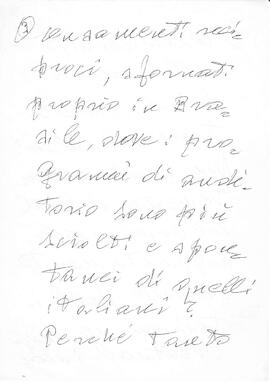 ③ ensamenti reci-
proci, sfornati
proprio in Bra-
sile, dove i pro-
grammi di audi-
torio sono più
sciolti e spon-
tanei di quelli
italiani?
Perché tanto